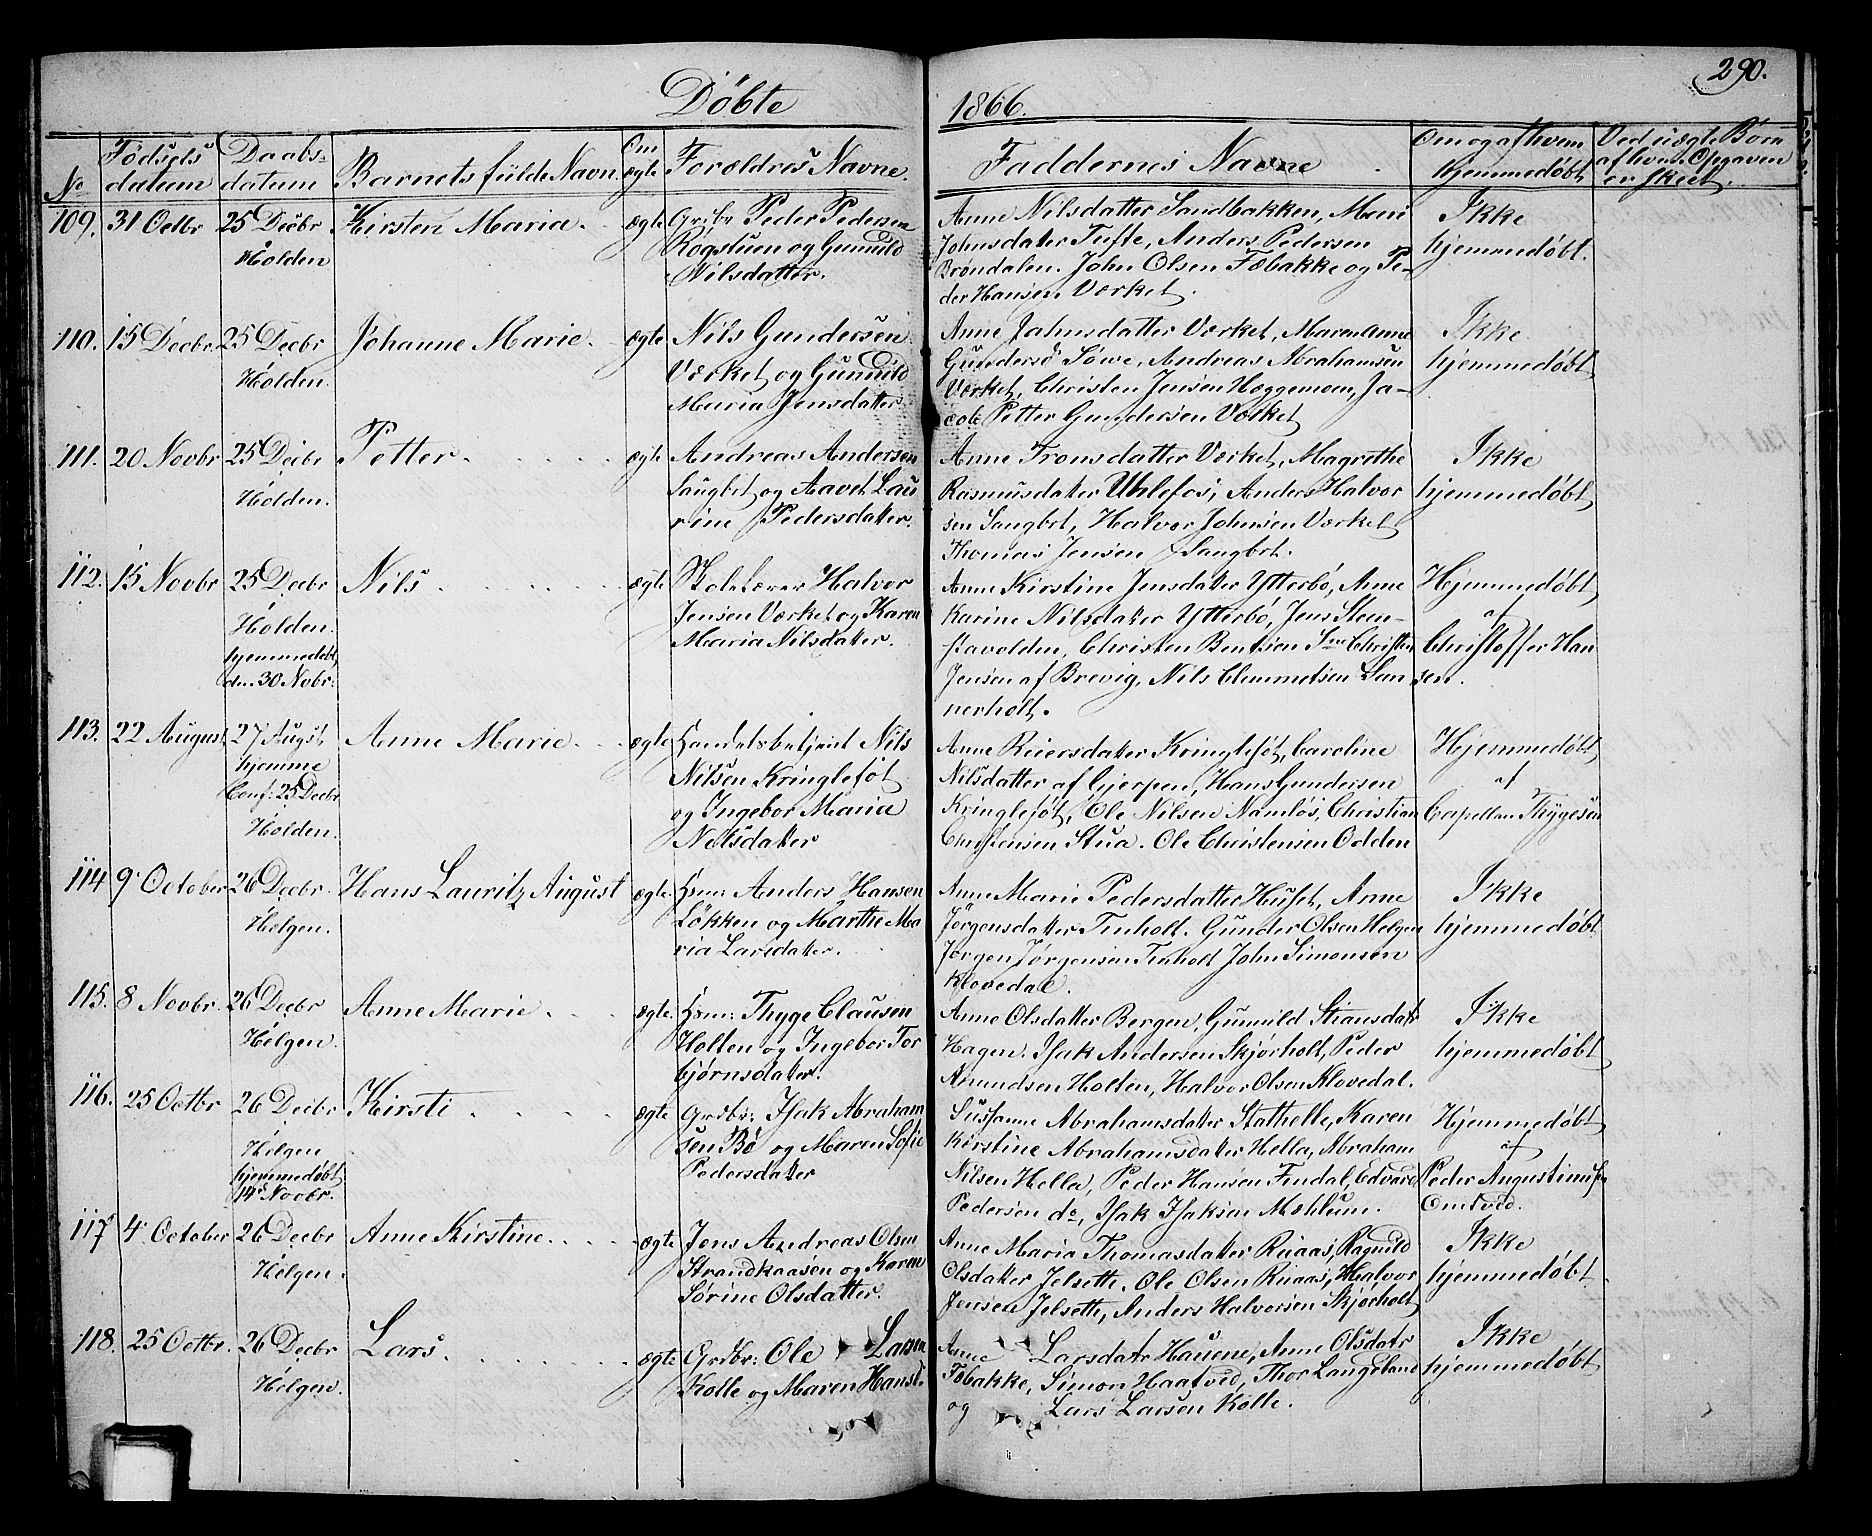 290.
Døbte
1866.
No
Fødsels
datum
Daabs-
datum
Barnets fulde Navn
Om
ægte
Forældres Navne.
Faddernes Navne
Om og af hvem
hjemmedøbt
Ved uægte Børn
af hvem Opgaven
er skeet.
109. 31 Octbr
25 Decbr
Holden
Kirsten Maria.
ægte
Grdbr Peder Pedersen
Rogstuen og Gunnild
Nilsdatter.
Anne Nilsdatter Sandbakken, Mari
Johnsdatter Tufte, Anders Pedersen
Brøndalen. John Olsen Fæbakke og Pe-
der Hansen Værket.
Ikke
hjemmedøbt.
110. 15 Decbr.
25 Decbr
Holden.
Johanne Marie.
ægte
Nils Gundersen
Værket og Gunnild
Maria Jensdatter
Anne Jahnsdatter Værket, Maren Anne
Gundersd Søwe, Andreas Abrahamsen
Værket, Christen Jensen Hæggemoen, Ja-
cob Petter Gundersen Værket
Ikke
hjemmedøbt
111. 20 Novbr
25 Decbr
Holden.
Petter.
ægte
Andreas Andersen
Saugbet og Aavet Lau
rine Pedersdatter.
Anne Tronsdatter Værket, Magrethe
Rasmusdatter Uhlefos, Anders Halvor
sen Saugbrt, Halvor Johnsen Værket
Thomas Jensen Saugbrt.
Ikke
hjemmedøbt
112. 15 Novbr
25 Decbr
Holden.
hjemmedøbt
den 30 Novbr.
Nils
ægte
Skolelærer Halvor
Jensen Værket og Karen
Maria Nilsdatter.
Anne Kirstine Jensdatter Ytterbø, Anne
Karine Nilsdatter Ytterbø, Jens Sten-
stavolden, Christen Bentsen Christen
Jensen af Brevig, Nils Clemmetsen Lun-
nerholt.
Hjemmedøbt
af
Christoffer Han
sen.
113. 22 August
27 Augst
hjemme
Conf: 25 Decbr
Holden.
Anne Marie.
ægte
Handelsbetjent Nils
Nilsen Kringlefot
og Ingebor Maria
Nelsdatter
Anne Reiersdatter Kringlefot, Caroline
Nilsdatter af Gjerpen, Hans Gundersen
Kringlefot, Ole Nilsen Namløs, Christian
Christensen Stua. Ole Christensen Odden
Hjemmedøbt
af
Capellan Thygesen
114 9 October
26 Decbr.
Helgen.
Hans Lauritz August
ægte
Hsm: Anders Hansen
Løkken og Marthe Ma
ria Larsdatter.
Anne Marie Pedersdatter Huset, Anne
Jørgensdatter Tinholt. Gunder Olsen Helgen
Jørgen Jørgensen Tinholt John Simonsen
Klovedal.
Ikke
hjemmedøbt
115. 8 Novbr.
26 Decbr
Helgen.
Anne Marie
ægte.
Hsm: Thyge Clausen
Holten og Ingebor Tor
bjørnsdatter.
Anne Olsdatter Bergen, Gunnild Stiansdatr
Hagen. Isak Andersen Skjørholt, Peder
Amundsen Holten, Halvor Olsen Klovedal.
Ikke
hjemmedøbt
116. 25 Octbr
26 Decbr
Helgen
hjemmedøbt
14 Novbr.
Kirsti
ægte
Grdbr: Isak Abraham
sen Bø og Maren Sofie
Pedersdatter
Sussanne Abrahamsdatter Stathelle, Karen
Kirstine Abrahamsdatter Hella, Abraham
Nilsen Hella, Peder Hansen Findal, Edvard
Pedersen do, Isak Isaksen Mæhlum.
Hjemmedøbt
af
Peder Augustinusen
Omtved.
117 4 October
26 Decbr
Helgen.
Anne Kirstine.
ægte
Jens Andreas Olsen
Strandkaasen og Karen
Sørine Olsdatter.
Anne Maria Thomasdatter Ruaas, Ragnild
Olsdatter Jelsette, Ole Olsen Ruaas, Halvor
Jensen Jelsette, Anders Halvorsen Skjørholt
Ikke
hjemmedøbt
118. 25 Octbr.
26 Decbr
Helgen.
Lars.
ægte
Grdbr: Ole Larsen
Kolle og Maren Hansd.
Anne Larsdatr Hauene, Anne Olsdatr
Fæbakke, Simon Haatved, Thor Langeland
og Lars Larsen Kolle.
Ikke
hjemmedøbt